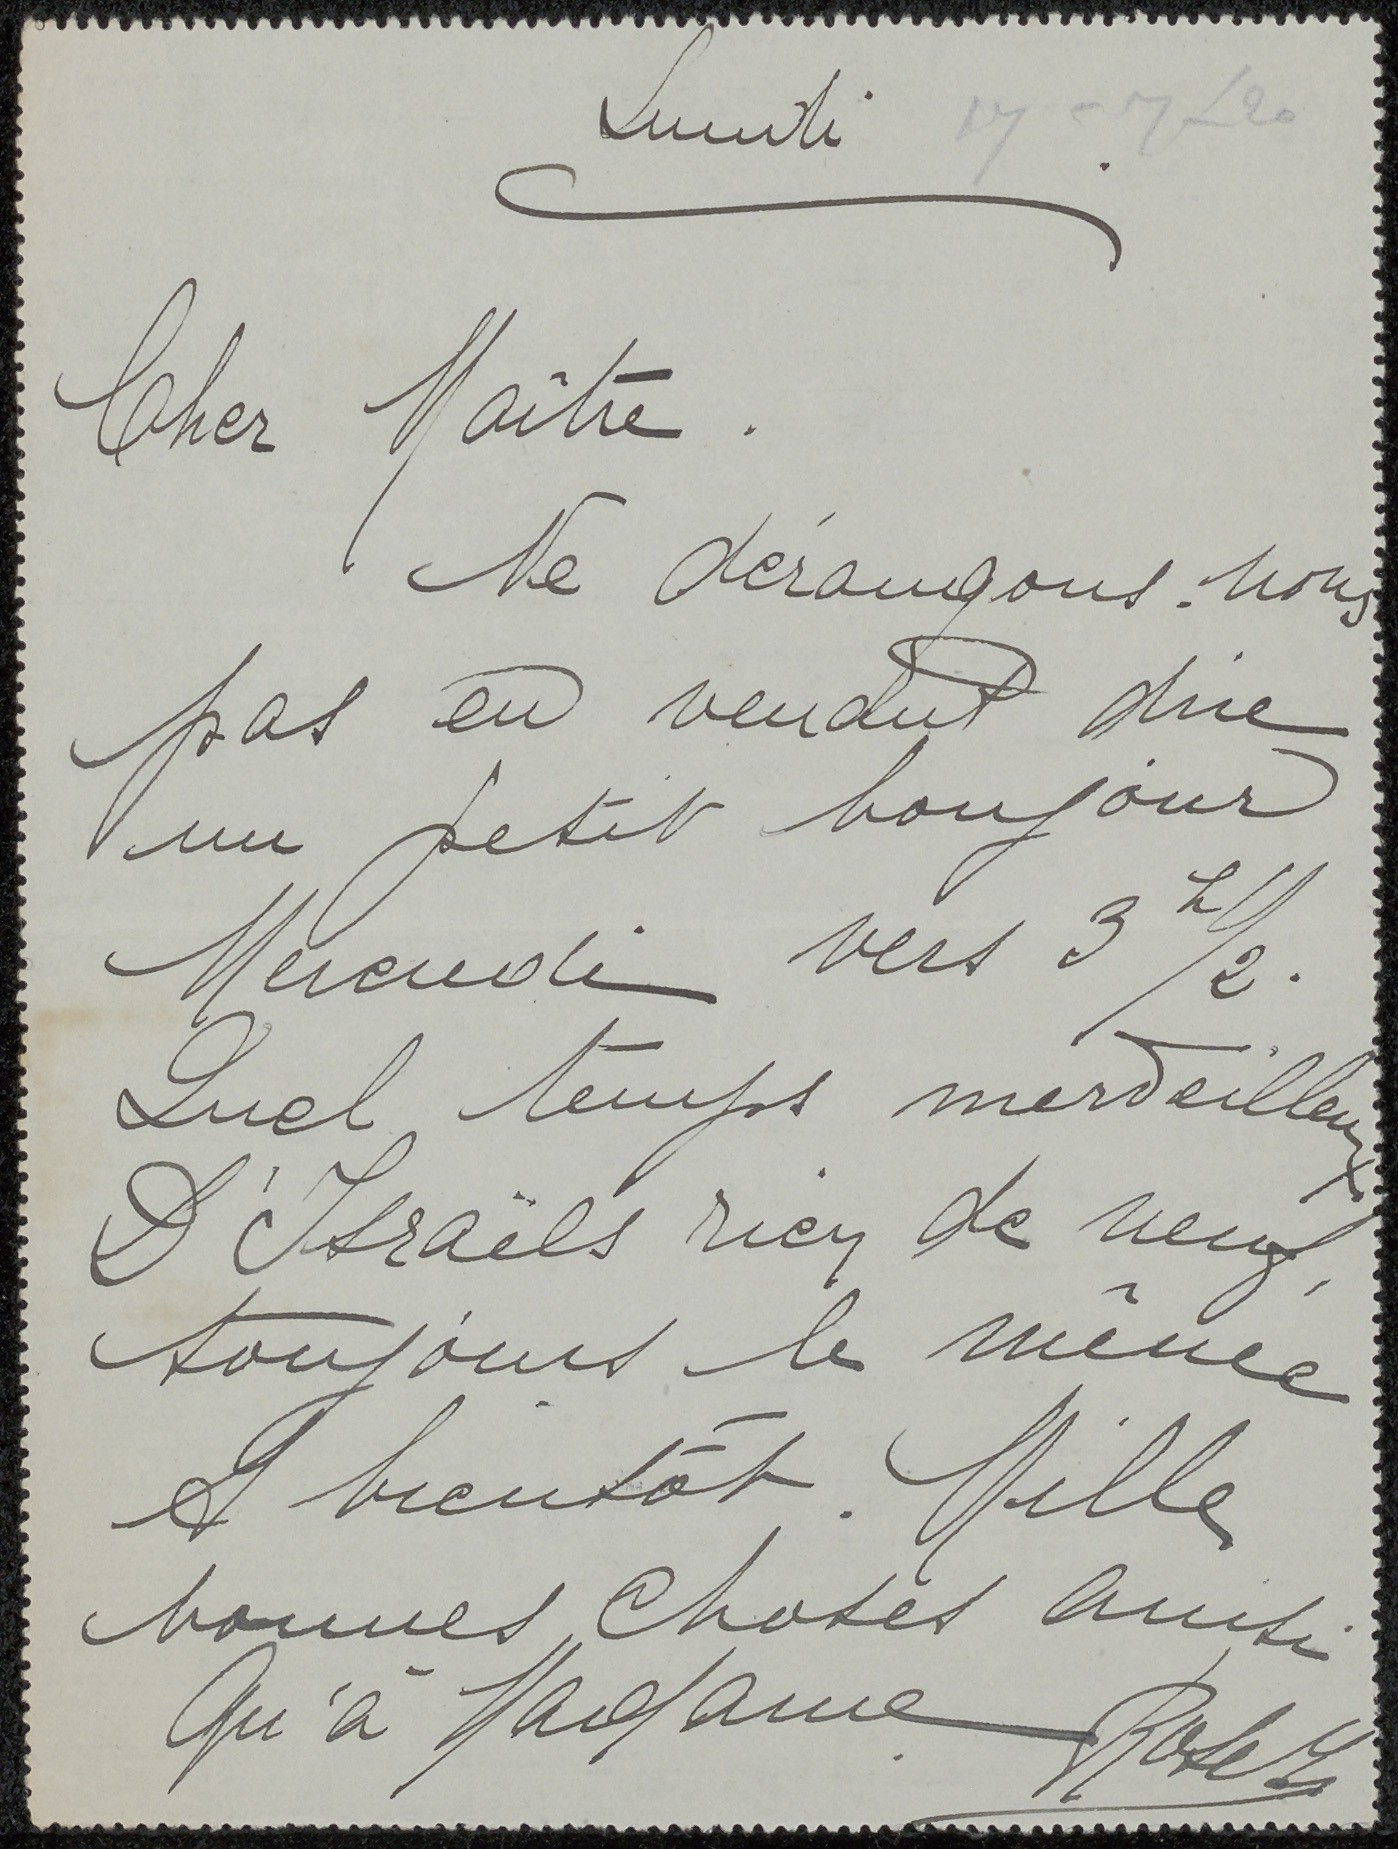 Lundi
Cher Maître.
Ne dérangons-nous
pas en vendut dire
un petit bonjour
Mercredi vers 3 h 1/2.
Quel temps merveilleux
D'Israëls rien de neuf,
toujours le même
A bientôt. Mille
bonnes choses ainsi
qu'à Madame